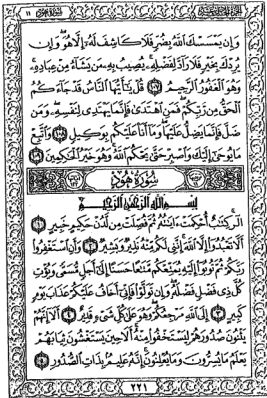 وَإِن يَمْسَسْكَ ٱللَّهُ بِضُرٍّ فَلَا كَاشِفَ لَهُۥٓ إِلَّا هُوَ وَإِن
يُرِدْكَ بِخَيْرٍ فَلَا رَآدَّ لِفَضْلِهِۦ يُصِيبُ بِهِۦ مَن يَشَآءُ مِنْ عِبَادِهِۦ
وَهُوَ ٱلْغَفُورُ ٱلرَّحِيمُ ١٠٧ قُلْ يَٰٓأَيُّهَا ٱلنَّاسُ قَدْ جَآءَكُمُ
ٱلْحَقُّ مِن رَّبِّكُمْ فَمَنِ ٱهْتَدَىٰ فَإِنَّمَا يَهْتَدِى لِنَفْسِهِۦ وَمَن
ضَلَّ فَإِنَّمَا يَضِلُّ عَلَيْهَا وَمَآ أَنَا۠ عَلَيْكُم بِوَكِيلٍ ١٠٨ وَٱتَّبِعْ
مَا يُوحَىٰٓ إِلَيْكَ وَٱصْبِرْ حَتَّىٰ يَحْكُمَ ٱللَّهُ وَهُوَ خَيْرُ ٱلْحَٰكِمِينَ ١٠٩
سُورَةُ هُودٍ
بِسْمِ ٱللَّهِ ٱلرَّحْمَٰنِ ٱلرَّحِيمِ
الٓر كِتَٰبٌ أُحْكِمَتْ ءَايَٰتُهُۥ ثُمَّ فُصِّلَتْ مِن لَّدُنْ حَكِيمٍ خَبِيرٍ ١
أَلَّا تَعْبُدُوٓا۟ إِلَّا ٱللَّهَ إِنَّنِى لَكُم مِّنْهُ نَذِيرٌ وَبَشِيرٌ ٢ وَأَنِ ٱسْتَغْفِرُوا۟
رَبَّكُمْ ثُمَّ تُوبُوٓا۟ إِلَيْهِ يُمَتِّعْكُم مَّتَٰعًا حَسَنًا إِلَىٰٓ أَجَلٍ مُّسَمًّى وَيُؤْتِ
كُلَّ ذِى فَضْلٍ فَضْلَهُۥ وَإِن تَوَلَّوْا۟ فَإِنِّىٓ أَخَافُ عَلَيْكُمْ عَذَابَ يَوْمٍ
كَبِيرٍ ٣ إِلَى ٱللَّهِ مَرْجِعُكُمْ وَهُوَ عَلَىٰ كُلِّ شَىْءٍ قَدِيرٌ ٤ أَلَآ إِنَّهُمْ
يَثْنُونَ صُدُورَهُمْ لِيَسْتَخْفُوا۟ مِنْهُ أَلَا حِينَ يَسْتَغْشُونَ ثِيَابَهُمْ
يَعْلَمُ مَا يُسِرُّونَ وَمَا يُعْلِنُونَ إِنَّهُۥ عَلِيمٌۢ بِذَاتِ ٱلصُّدُورِ ٥
٢٢١